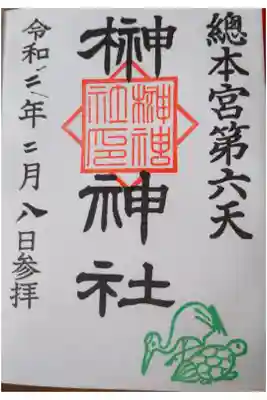 總本宮第六天
榊神社
榊神社印
令和三年二月八日参拝